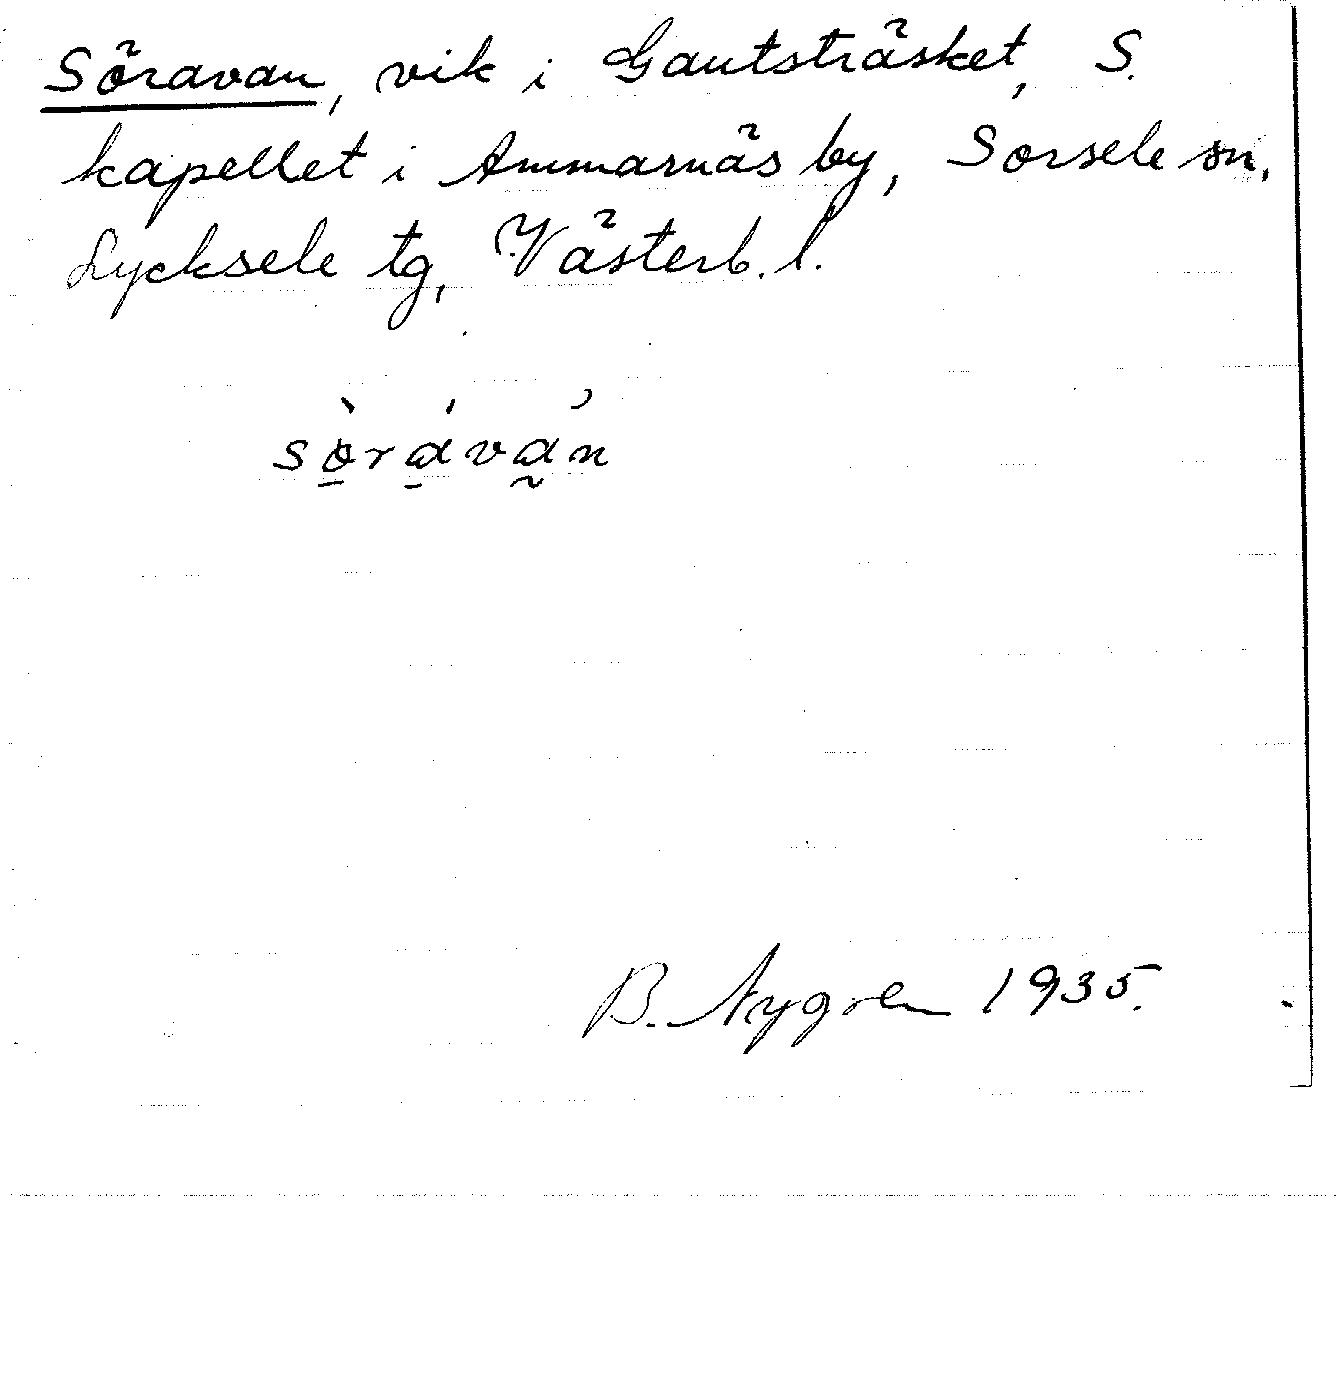 Söravan, vik i Gautsträsket, S.
kapellet i Ammarnäs by, Sorsele sn,
Lycksele tg, Västerb. l.
B. Nygren 1935.